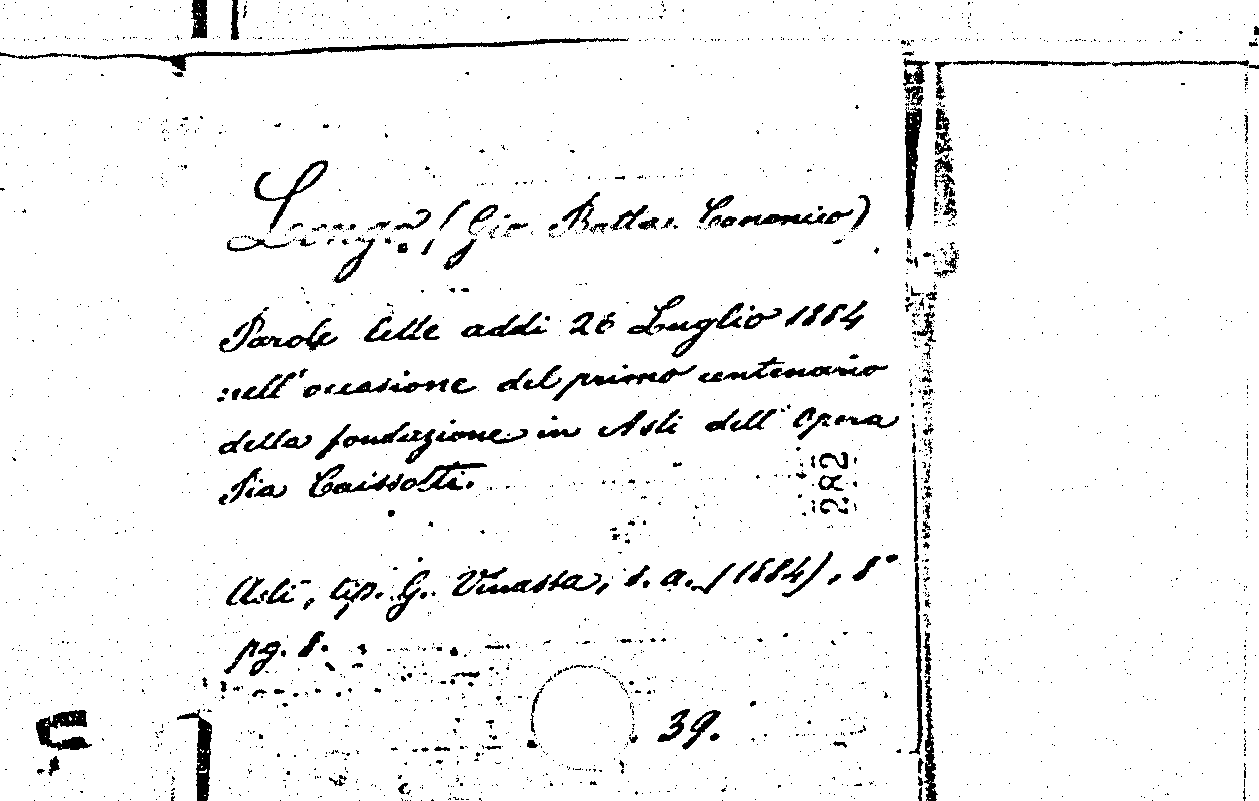 Longo, (Gio. Batta. Canonico)
Parole lette addi 26 Luglio 1884
nell'occasione del primo centenario
della fondazione in Asti dell'Opera
Pia Caissotti.
282
Asti, tip. G. Vinassa, s. a. (1884), 8°
pg. 8.
39.